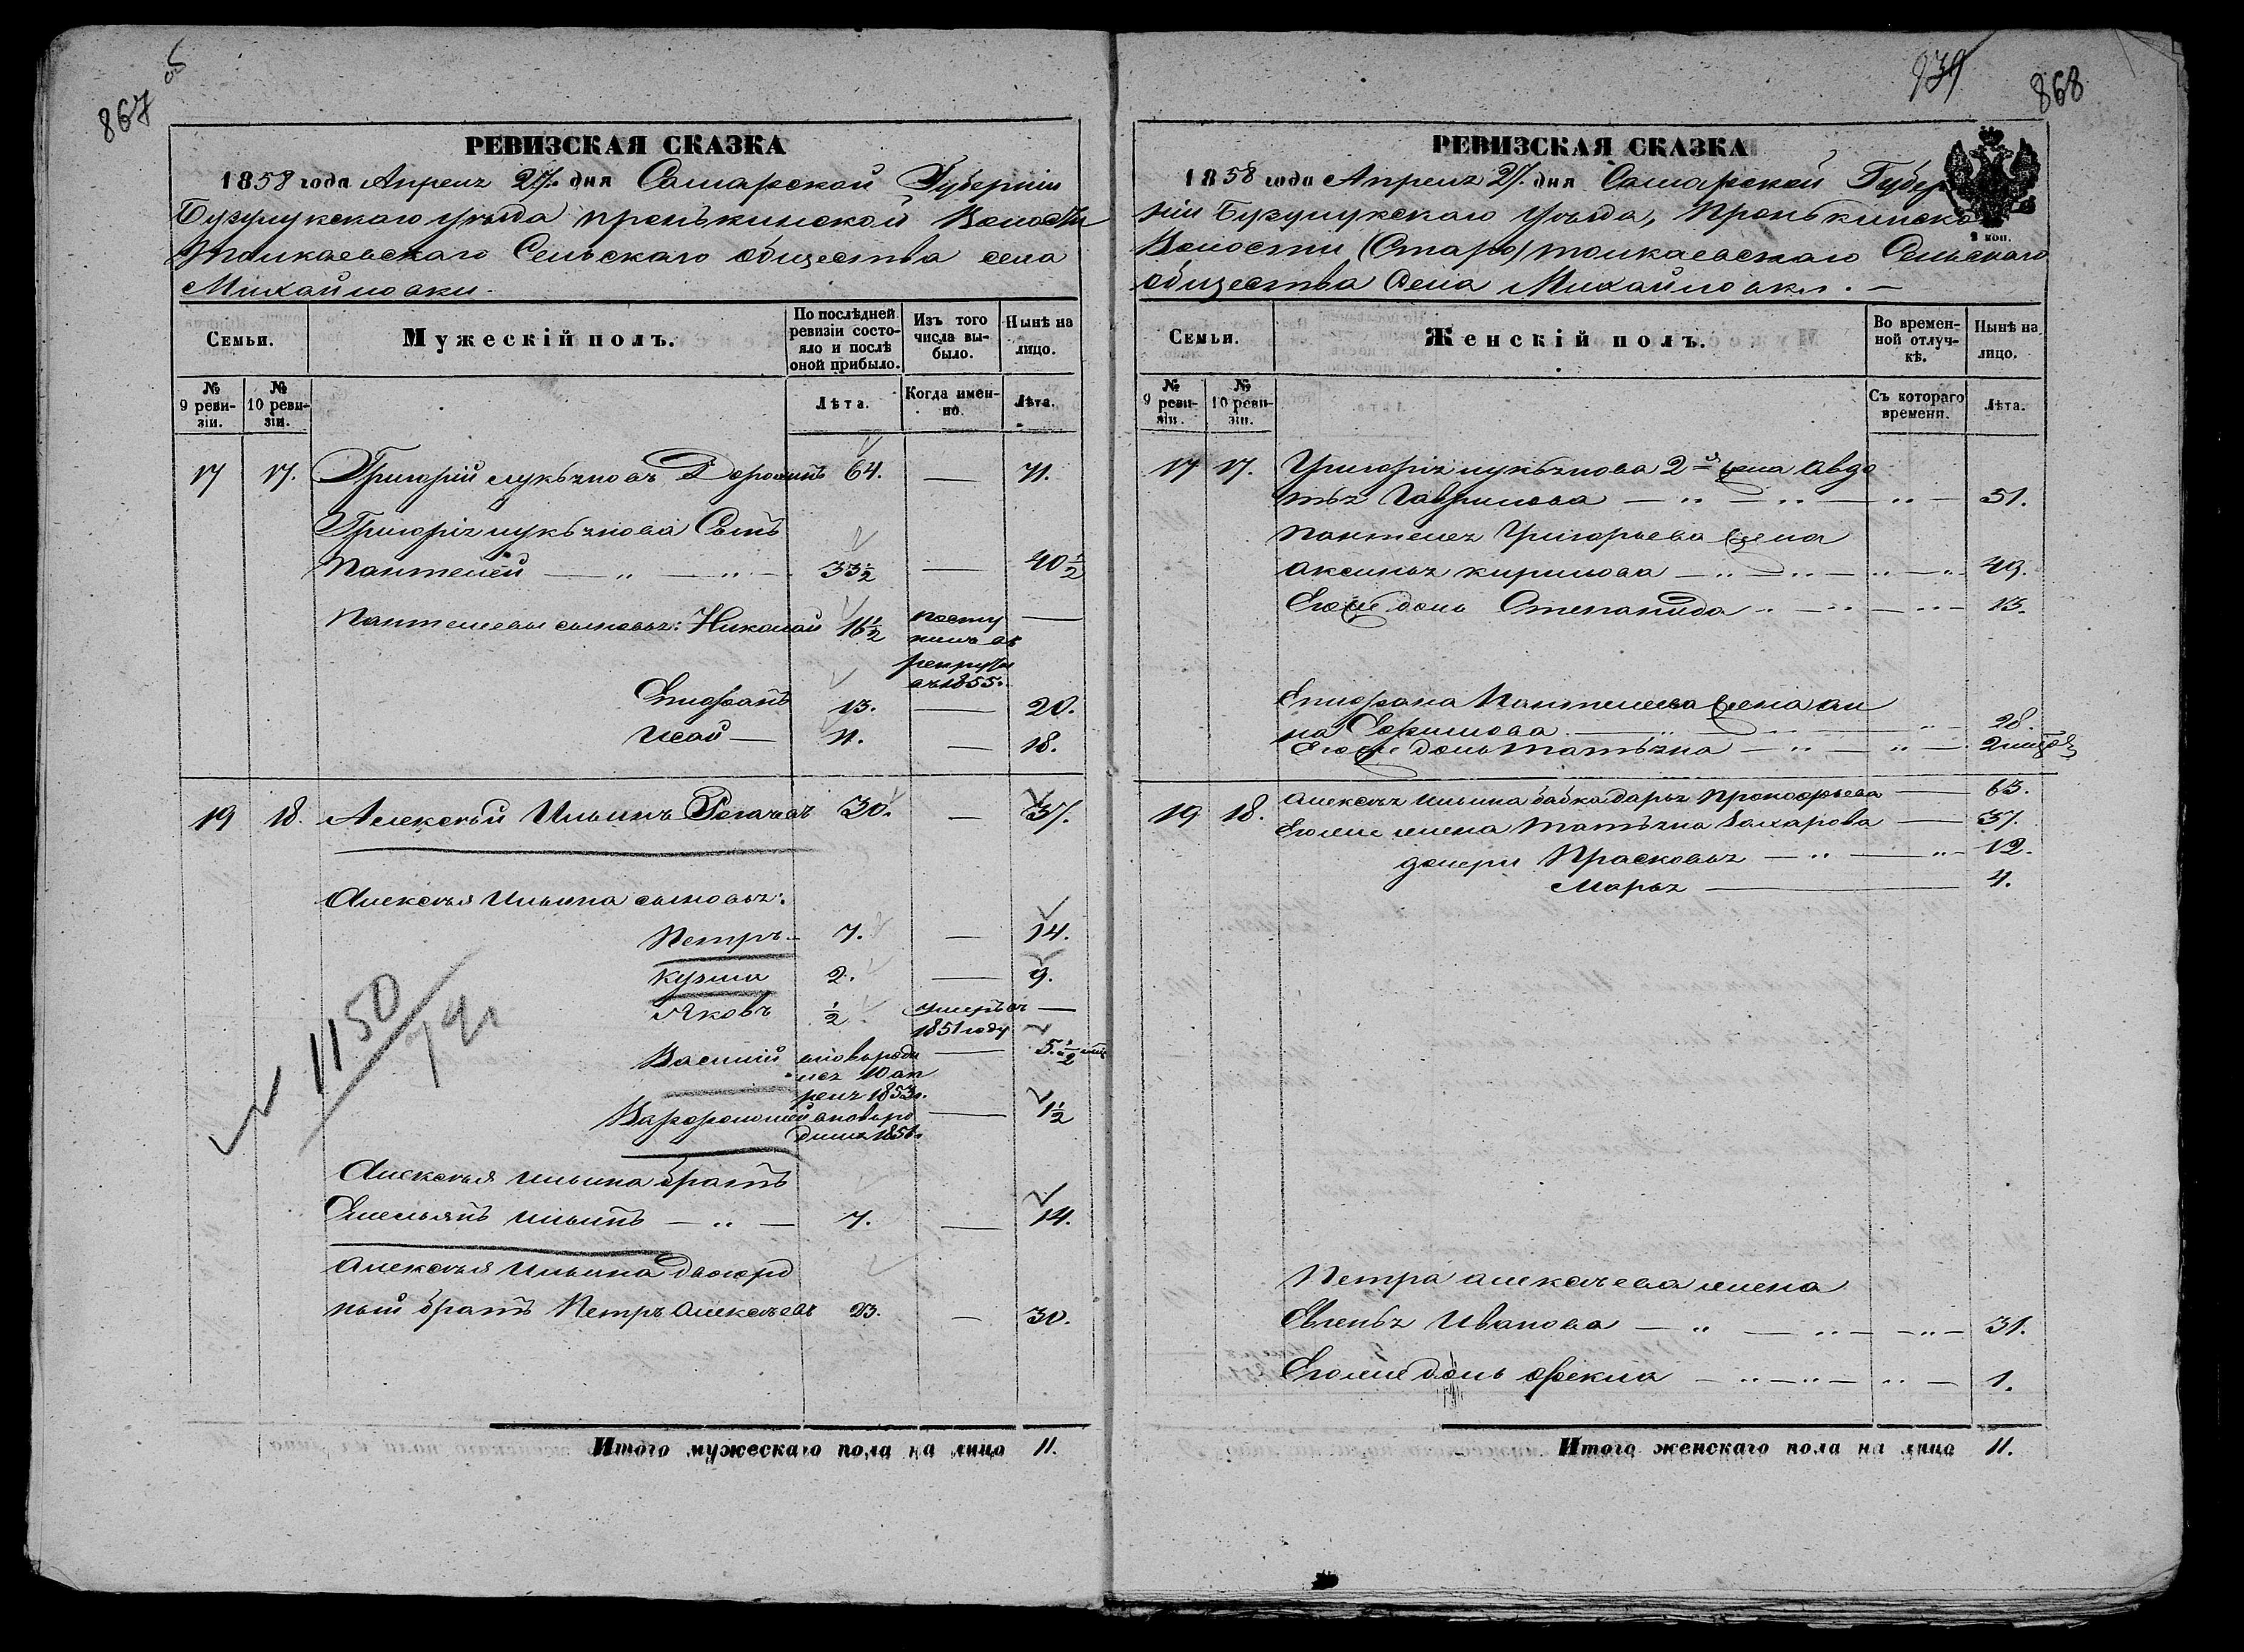 867
РЕВИЗСКАЯ СКАЗКА
1858 года Апреля 27. дня Самарской Губернии
Бузулукскаго уѣзда пронькинской Волости
Толкаевскаго Сельскаго общества села
Михайловки.
Семьи.
Мужескій полъ.
По послѣдней ревизіи состояло и послѣ оной прибыло.
Изъ того числа выбыло.
Нынѣ на лицо.
№ 9 ревизіи.
№ 10 ревизіи.
Лѣта.
Когда именно.
Лѣта.
17 17. Григорій лукьяновъ Доронинъ 64. — 71.
Григорія лукьянова Сынъ
Пантелей — „ — „ — 33 1/2 — 40 1/2
Пантелеевы сыновья: Николай 16 1/2 посту —
пилъ въ
рекруты
въ 1855.
Епифанъ 13. — 20.
Исай — 11. — 18.
19 18. Алексѣй Ильинъ Рогачевъ 30. — 37.
Алексѣя Ильина сыновья:
Петръ — 7. — 14.
Кузма 2. — 9.
Яковъ 1/2 умеръ въ —
1851 году
Василій вновь роди — 5 1/2
лся 10 ап
реля 1853г.
Варфоломей вновь ро — 1 1/2
дился 1856г.
№ 1150
Алексѣя Ильина братъ
Емельянъ Ильинъ — „ — 7. — 14.
Алексѣя Ильина двоюрод
ный братъ Петръ Алексѣевъ 23. — 30.
Итого мужескаго пола на лицо 11.
939
868
РЕВИЗСКАЯ СКАЗКА
1858 года Апреля 27. дня Самарской Губер
ніи Бузулукскаго Уѣзда, Пронькинской
Волости (Старо) толкаевскаго Сельскаго
общества Села Михайловки. —
Семьи.
Женскій полъ.
Во временной отлучкѣ.
Нынѣ на лицо.
№ 9 ревизіи.
№ 10 ревизіи.
Съ котораго времени.
Лѣта.
17 17. Григорія лукьянова 2я жена Авдо
тья Гаврилова — „ — „ — „ — 51.
Пантелея Григорьева жена
Аксинья кирилова — „ — „ — „ — „ 49.
Его же дочь Степанида „ — „ — „ 13.
Епифана Пантелеева жена ан
на Ефимова — „ — 20.
Его же дочь татьяна — „ — „ — 2 мѣсяца
19 18. Алексѣя Ильина бабка дарья Прокофьева — 63.
Его же жена татьяна Захарова — 37.
дочери Прасковья — „ — „ — 12.
Марья — 4.
Петра алексѣева жена
Евгенья Иванова — „ — „ — „ — 31.
Его же дочь фекла — „ — „ — „ — 1.
Итого женскаго пола на лицо 11.